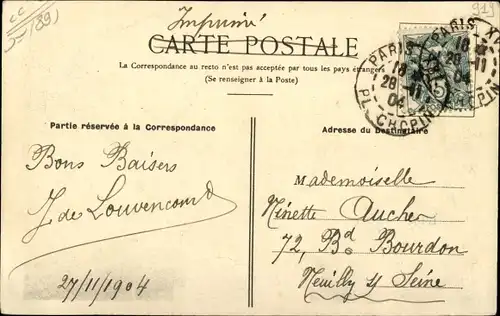 Imprimé
CARTE POSTALE
La Correspondance au recto n'est pas acceptée par tous les pays étrangers
(Se renseigner à la Poste)
Partie réservée à la Correspondance
Adresse du Destinataire
Bons Baisers
J de Louvencourt
27/11/1904
Mademoiselle
Ninette Aucher
72, Bd Bourdon
Neuilly s/ Seine
PARIS XVI
18
28 11
04
PL. CHOPIN
PARIS XVI
18
28 11
04
CHOPIN
5
(89)
919